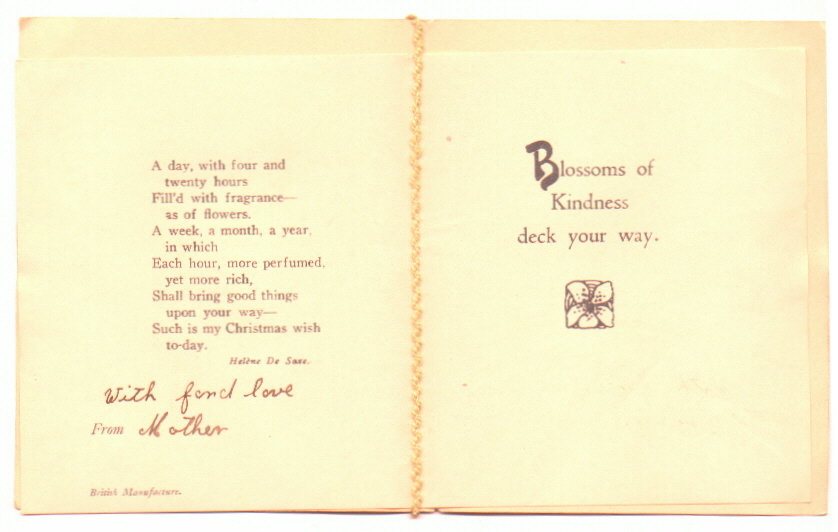 A day, with four and
twenty hours
Fill'd with fragrance—
as of flowers.
A week, a month, a year,
in which
Each hour, more perfumed,
yet more rich,
Shall bring good things
upon your way—
Such is my Christmas wish
to-day.
Helène De Saxe.
With fond love
From Mother
British Manufacture.
Blossoms of
Kindness
deck your way.